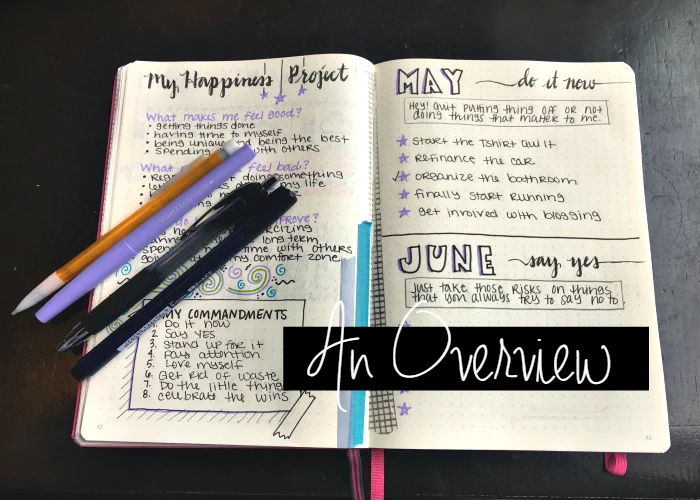 My Happiness Project
What makes me feel good?
• getting things done
• having time to myself
• being unique and being the best
• spending with others
What feel bad?
• doing something
• my life
•
improve?
long term
time with others
my comfort zone
MY COMMANDMENTS
1. Do it now
2. Say YES
3. Stand up for it
4. pay attention
5. Love myself
6. Get Rid of waste
7. Do the little things
8. celebrate the wins
42
MAY do it now
Hey! Quit putting thing off or not
doing things that matter to me.
start the Tshirt quilt
refinance the car
organize the bathroom
finally start running
get involved with blogging
JUNE say yes
Just take those risks on things
that you always try to say no to.
An Overview
43